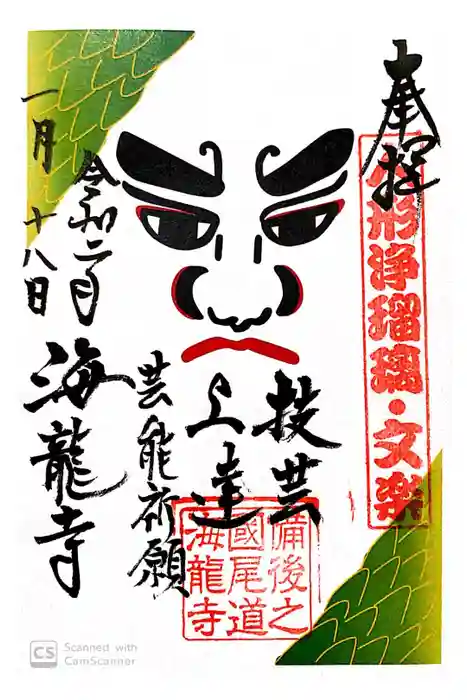 奉拝
人形浄瑠璃・文楽
技芸
上達
備後之
國尾道
海龍寺
芸能祈願
海龍寺
令和二年
一月十八日
CS Scanned with
CamScanner